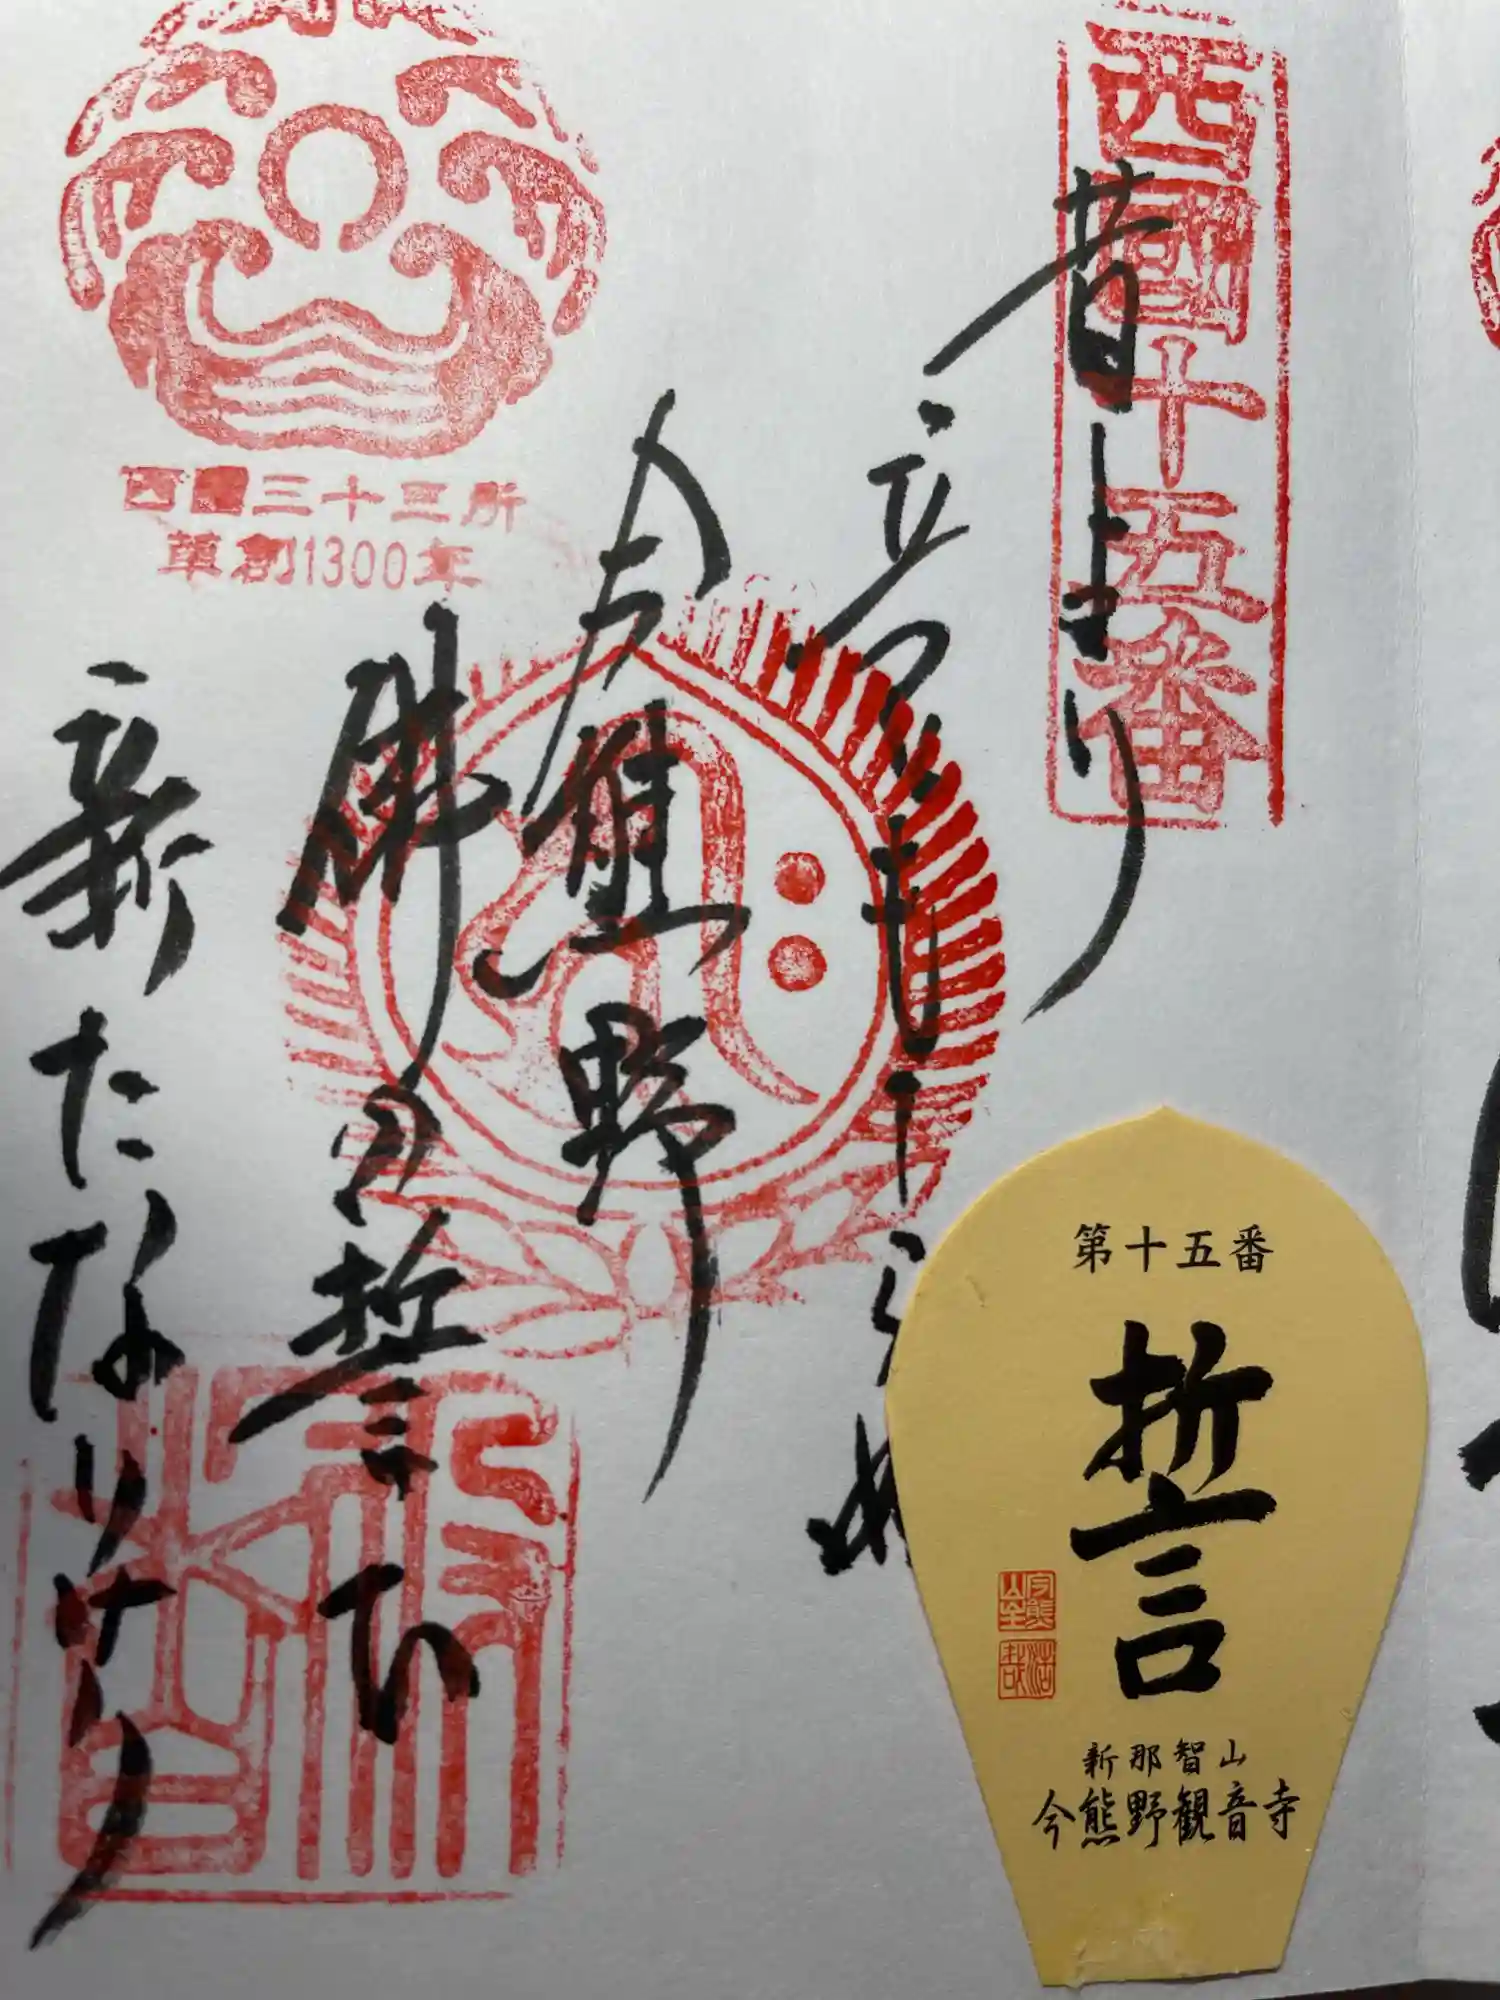 西國十五番
昔より
立つともしらぬ
今熊野
佛の誓ひ
新たなりけり
西国三十三所
草創1300年
第十五番
誓
新那智山
今熊野観音寺